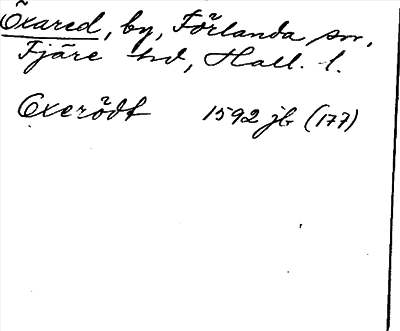 Öxared, by, Förlanda sn,
Fjäre hd, Hall. l.
Oxerödt 1592 jb (177)